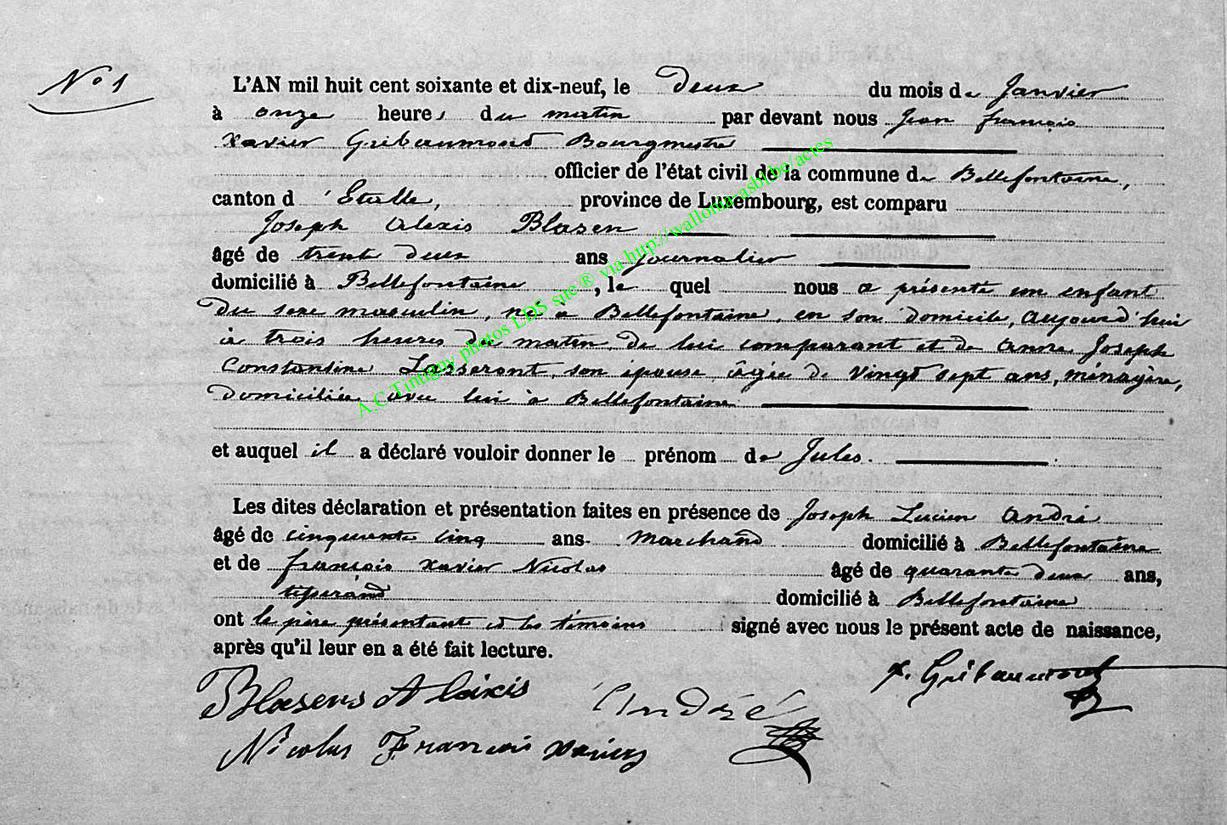 N° 1
L'AN mil huit cent soixante et dix-neuf, le deux du mois de Janvier
à onze heures du matin par devant nous Jean françois
xavier Gribaumont Bourgmestre
officier de l'état civil de la commune de Bellefontaine,
canton d'Etalle, province de Luxembourg, est comparu
Joseph Alexis Blasen
âgé de trente deux ans journalier
domicilié à Bellefontaine, le quel nous a présenté un enfant
du sexe masculin, né à Bellefontaine, en son domicile, aujourd'hui
à trois heures du matin, de lui comparant et de Anne Joseph
Constantine Lasseront, son épouse, âgée de vingt sept ans, ménagère,
domiciliée avec lui à Bellefontaine
et auquel il a déclaré vouloir donner le prénom de Jules.
Les dites déclaration et présentation faites en présence de Joseph Lucien André
âgé de cinquante cinq ans marchand domicilié à Bellefontaine
et de françois xavier Nicolas âgé de quarante deux ans,
tisserand domicilié à Bellefontaine
ont le père présentant et les témoins signé avec nous le présent acte de naissance,
après qu'il leur en a été fait lecture.
x. Gribaumont
Blasens Alaixis André
Nicolas François xavier
A.C. Tintigny photos LDS site ® via http://wallonica
/actes